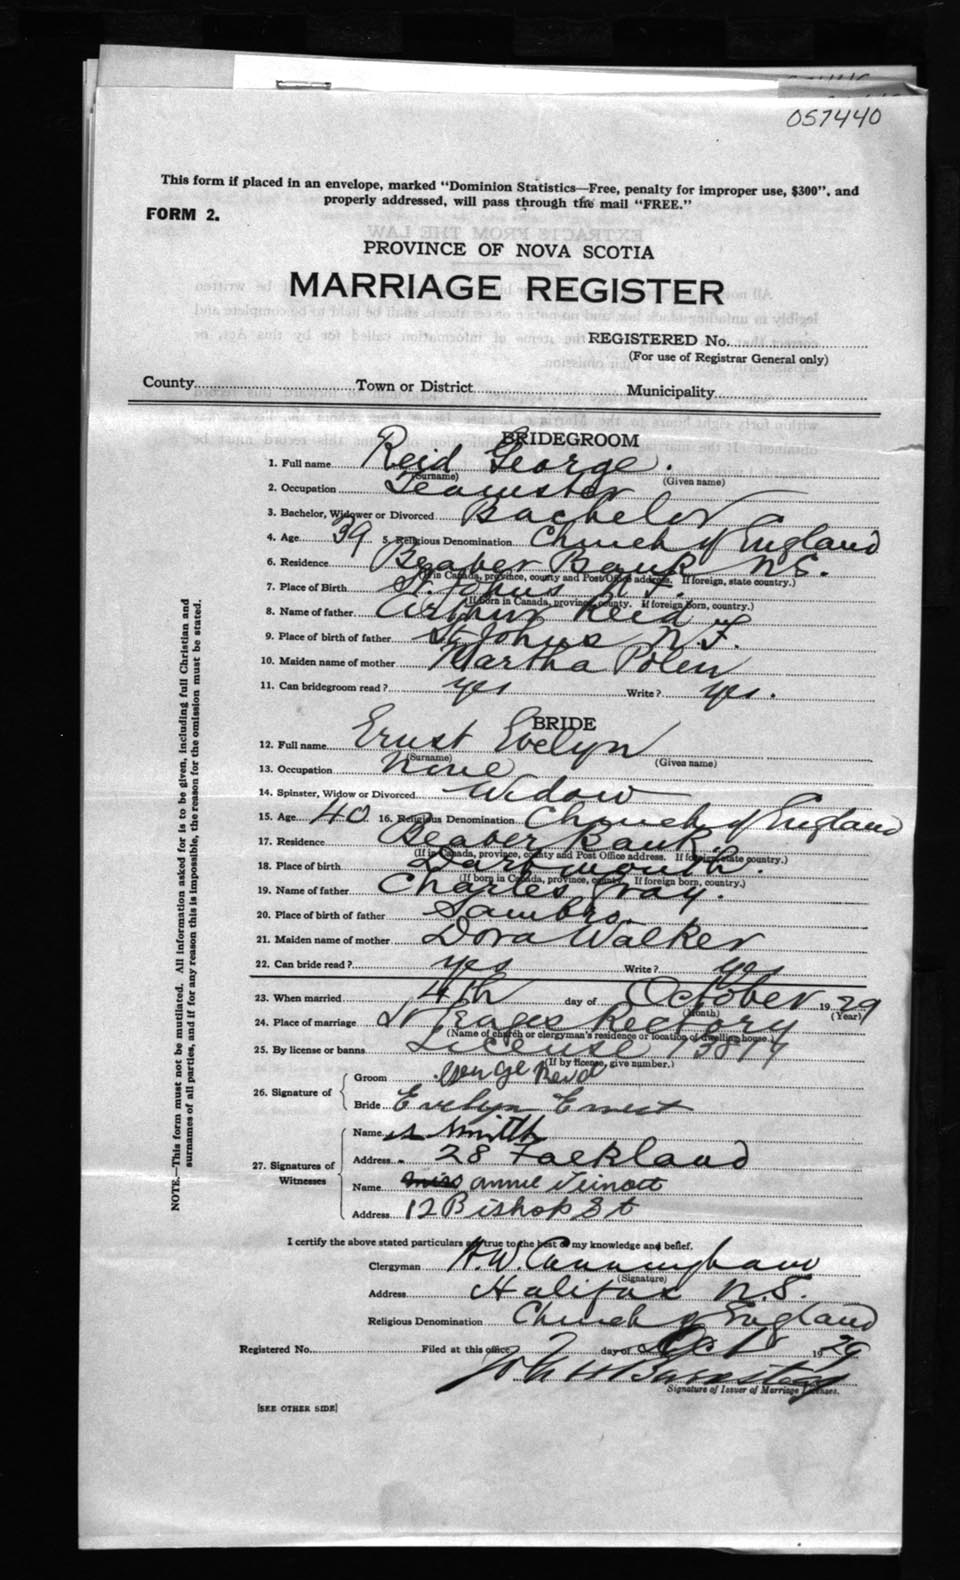 057440
This form if placed in an envelope, marked "Dominion Statistics—Free, penalty for improper use, $300", and
properly addressed, will pass through the mail "FREE."
FORM 2.
PROVINCE OF NOVA SCOTIA
MARRIAGE REGISTER
REGISTERED No.
(For use of Registrar General only)
County Town or District Municipality
BRIDEGROOM
1. Full name Reid George.
(Surname) (Given name)
2. Occupation Teamster
3. Bachelor, Widower or Divorced Bachelor
4. Age 39 5. Religious Denomination Church of England
6. Residence Beaver Bank N.S.
(If in Canada, province, county and Post Office address. If foreign, state country.)
7. Place of Birth St. Johns N.F.
(If born in Canada, province, county. If foreign born, country.)
8. Name of father Arthur Reid
9. Place of birth of father St Johns N.F.
10. Maiden name of mother Martha Polen
11. Can bridegroom read? yes Write? yes.
BRIDE
12. Full name Ernst Evelyn
(Surname) (Given name)
13. Occupation None
14. Spinster, Widow or Divorced Widow
15. Age 40 16. Religious Denomination Church of England
17. Residence Beaver Bank
(If in Canada, province, county and Post Office address. If foreign, state country.)
18. Place of birth Dartmouth.
(If born in Canada, province, county. If foreign born, country.)
19. Name of father Charles Gray.
20. Place of birth of father Sambro.
21. Maiden name of mother Dora Walker
22. Can bride read? yes Write? yes
23. When married 4th day of October 1929
(Month) (Year)
24. Place of marriage St Rectory
(Name of church or clergyman's residence or location of dwelling house.)
25. By license or banns License
(If by license, give number.)
26. Signature of
Groom George Reid
Bride Evelyn Ernst
27. Signatures of
Witnesses
Name Smith
Address 28 Falkland
Name Annie
Address 12 Bishop St
I certify the above stated particulars are true to the best of my knowledge and belief.
Clergyman H.W. Cunningham
(Signature)
Address Halifax N.S.
Religious Denomination Church of England
Registered No. Filed at this office day of Oct 1929
Signature of Issuer of Marriage Licenses.
[SEE OTHER SIDE]
NOTE.—This form must not be mutilated. All information asked for is to be given, including full Christian and
surnames of all parties, and if for any reason this is impossible, the reason for the omission must be stated.